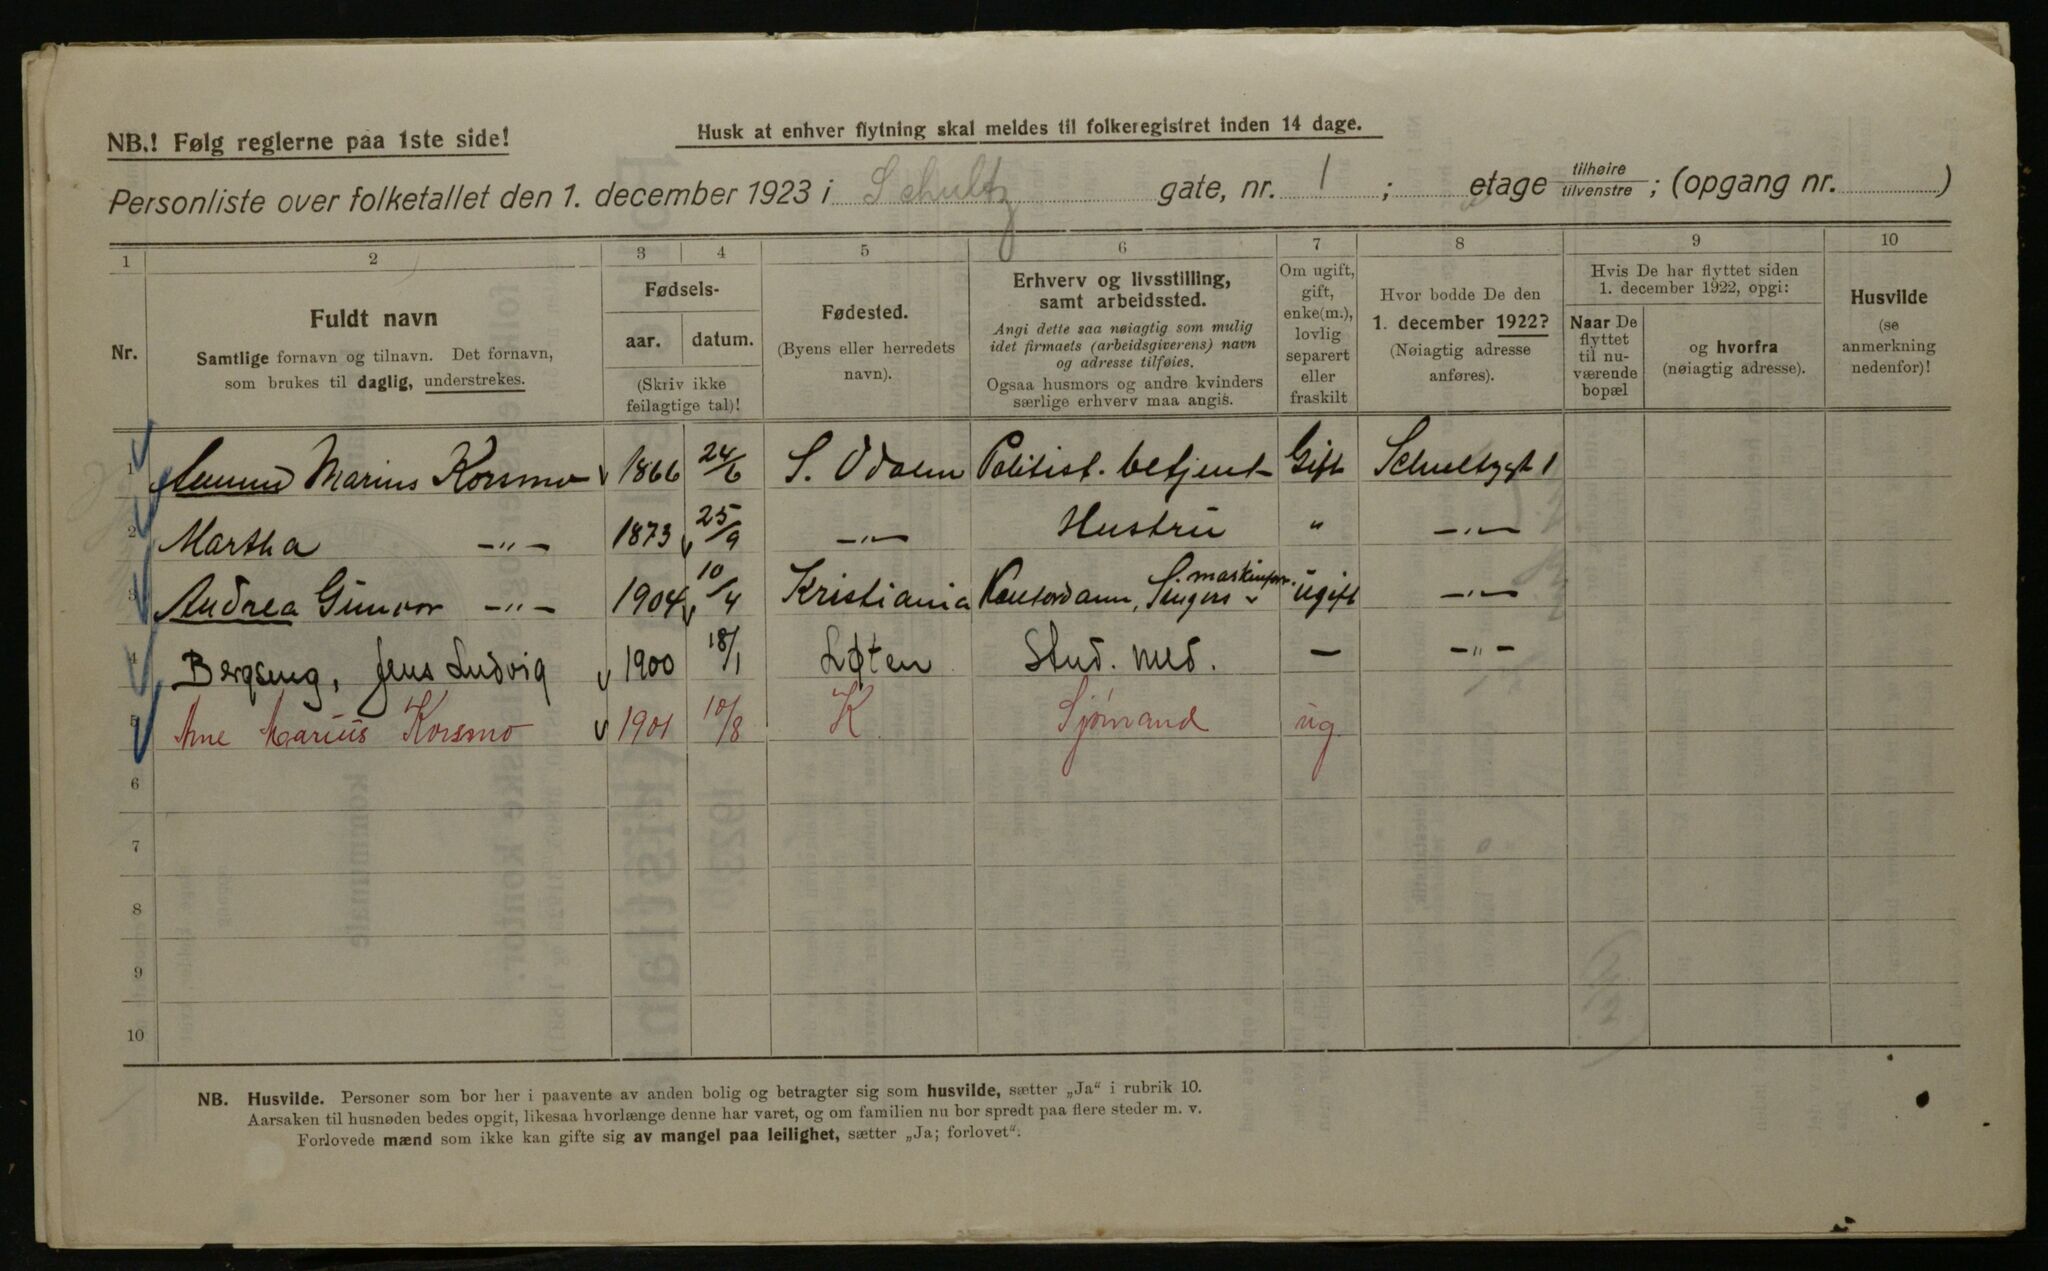 NB.! Følg reglerne paa 1ste side!
Husk at enhver flytning skal meldes til folkeregistret inden 14 dage.
Personliste over folketallet den 1. december 1923 i Schultz gate, nr. 1 ; etage tilhøire tilvenstre ; (opgang nr. )
1 2 3 4 5 6 7 8 9 10
Nr.
Fuldt navn
Samtlige fornavn og tilnavn. Det fornavn,
som brukes til daglig, understrekes.
Fødsels-
aar. datum.
(Skriv ikke
feilagtige tal)!
Fødested.
(Byens eller herredets
navn).
Erhverv og livsstilling,
samt arbeidssted.
Angi dette saa nøiagtig som mulig
idet firmaets (arbeidsgiverens) navn
og adresse tilføies.
Ogsaa husmors og andre kvinders
særlige erhverv maa angis.
Om ugift,
gift,
enke(m.),
lovlig
separert
eller
fraskilt
Hvor bodde De den
1. december 1922?
(Nøiagtig adresse
anføres).
Hvis De har flyttet siden
1. december 1922, opgi:
Naar De
flyttet
til nu-
værende
bopæl
og hvorfra
(nøiagtig adresse).
Husvilde
(se
anmerkning
nedenfor)!
1 Amund Marius Korsmo 1866 24/6 S. Odalen Politist. betjent Gift Schultzgt 1
2 Martha —"— 1873 25/9 —"— Hustru " —"—
3 Andrea Gunvor —"— 1904 10/4 Kristiania Kontordame, Singers maskinforr. ugift —"—
4 Bergseng, Jens Ludvig 1900 18/1 Løten Stud. med. — —"—
5 Arne Marius Korsmo 1901 10/8 K Sjømand ug.
6
7
8
9
10
NB. Husvilde. Personer som bor her i paavente av anden bolig og betragter sig som husvilde, sætter „Ja" i rubrik 10.
Aarsaken til husnøden bedes opgit, likesaa hvorlænge denne har varet, og om familien nu bor spredt paa flere steder m. v.
Forlovede mænd som ikke kan gifte sig av mangel paa leilighet, sætter „Ja; forlovet".